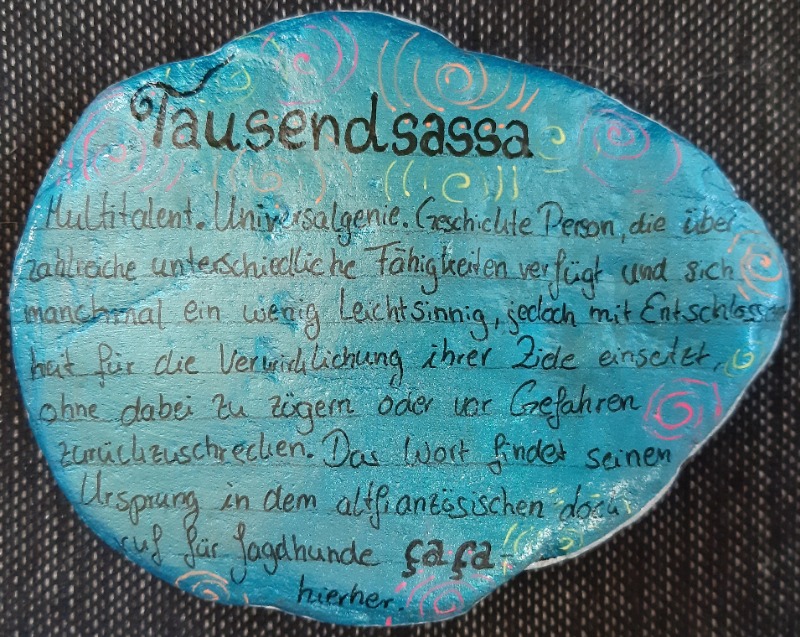 Tausendsassa
Multitalent. Universalgenie. Geschickte Person, die über
zahlreiche unterschiedliche Fähigkeiten verfügt und sich
manchmal ein wenig leichtsinnig, jedoch mit Entschlossen
heit für die Verwirklichung ihrer Ziele einsetzt,
ohne dabei zu zögern oder vor Gefahren
zurückzuschrecken. Das Wort findet seinen
Ursprung in dem altfranzösischen
ruf für Jagdhunde çaça-
hierher.